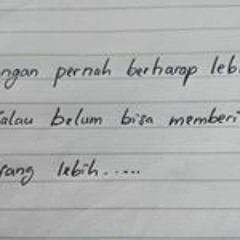 ngan pernah berharap leb
alau belum bisa memberi
rang lebih.....